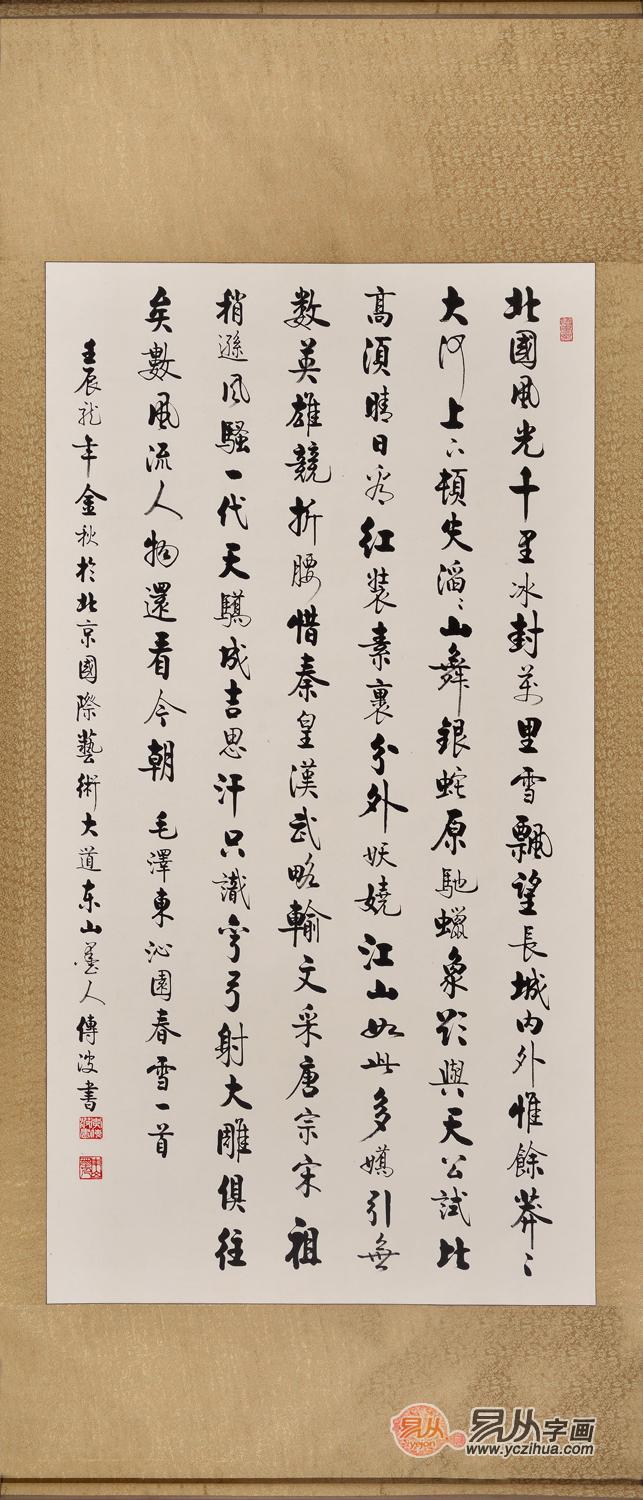 北國風光千里冰封萬里雪飄望長城内外惟餘莽〻
大河上下頓失滔〻山舞銀蛇原馳蠟象欲與天公試比
高須晴日看紅裝素裹分外妖嬈江山如此多嬌引無
数英雄競折腰惜秦皇漢武略輸文采唐宗宋祖
稍遜風騷一代天驕成吉思汗只識彎弓射大雕俱往
矣數風流人物還看今朝 毛澤東沁園春雪一首
壬辰龍年金秋於北京國際藝術大道东山墨人傳波書
易从
yejon
易从字画
www.yczihua.com